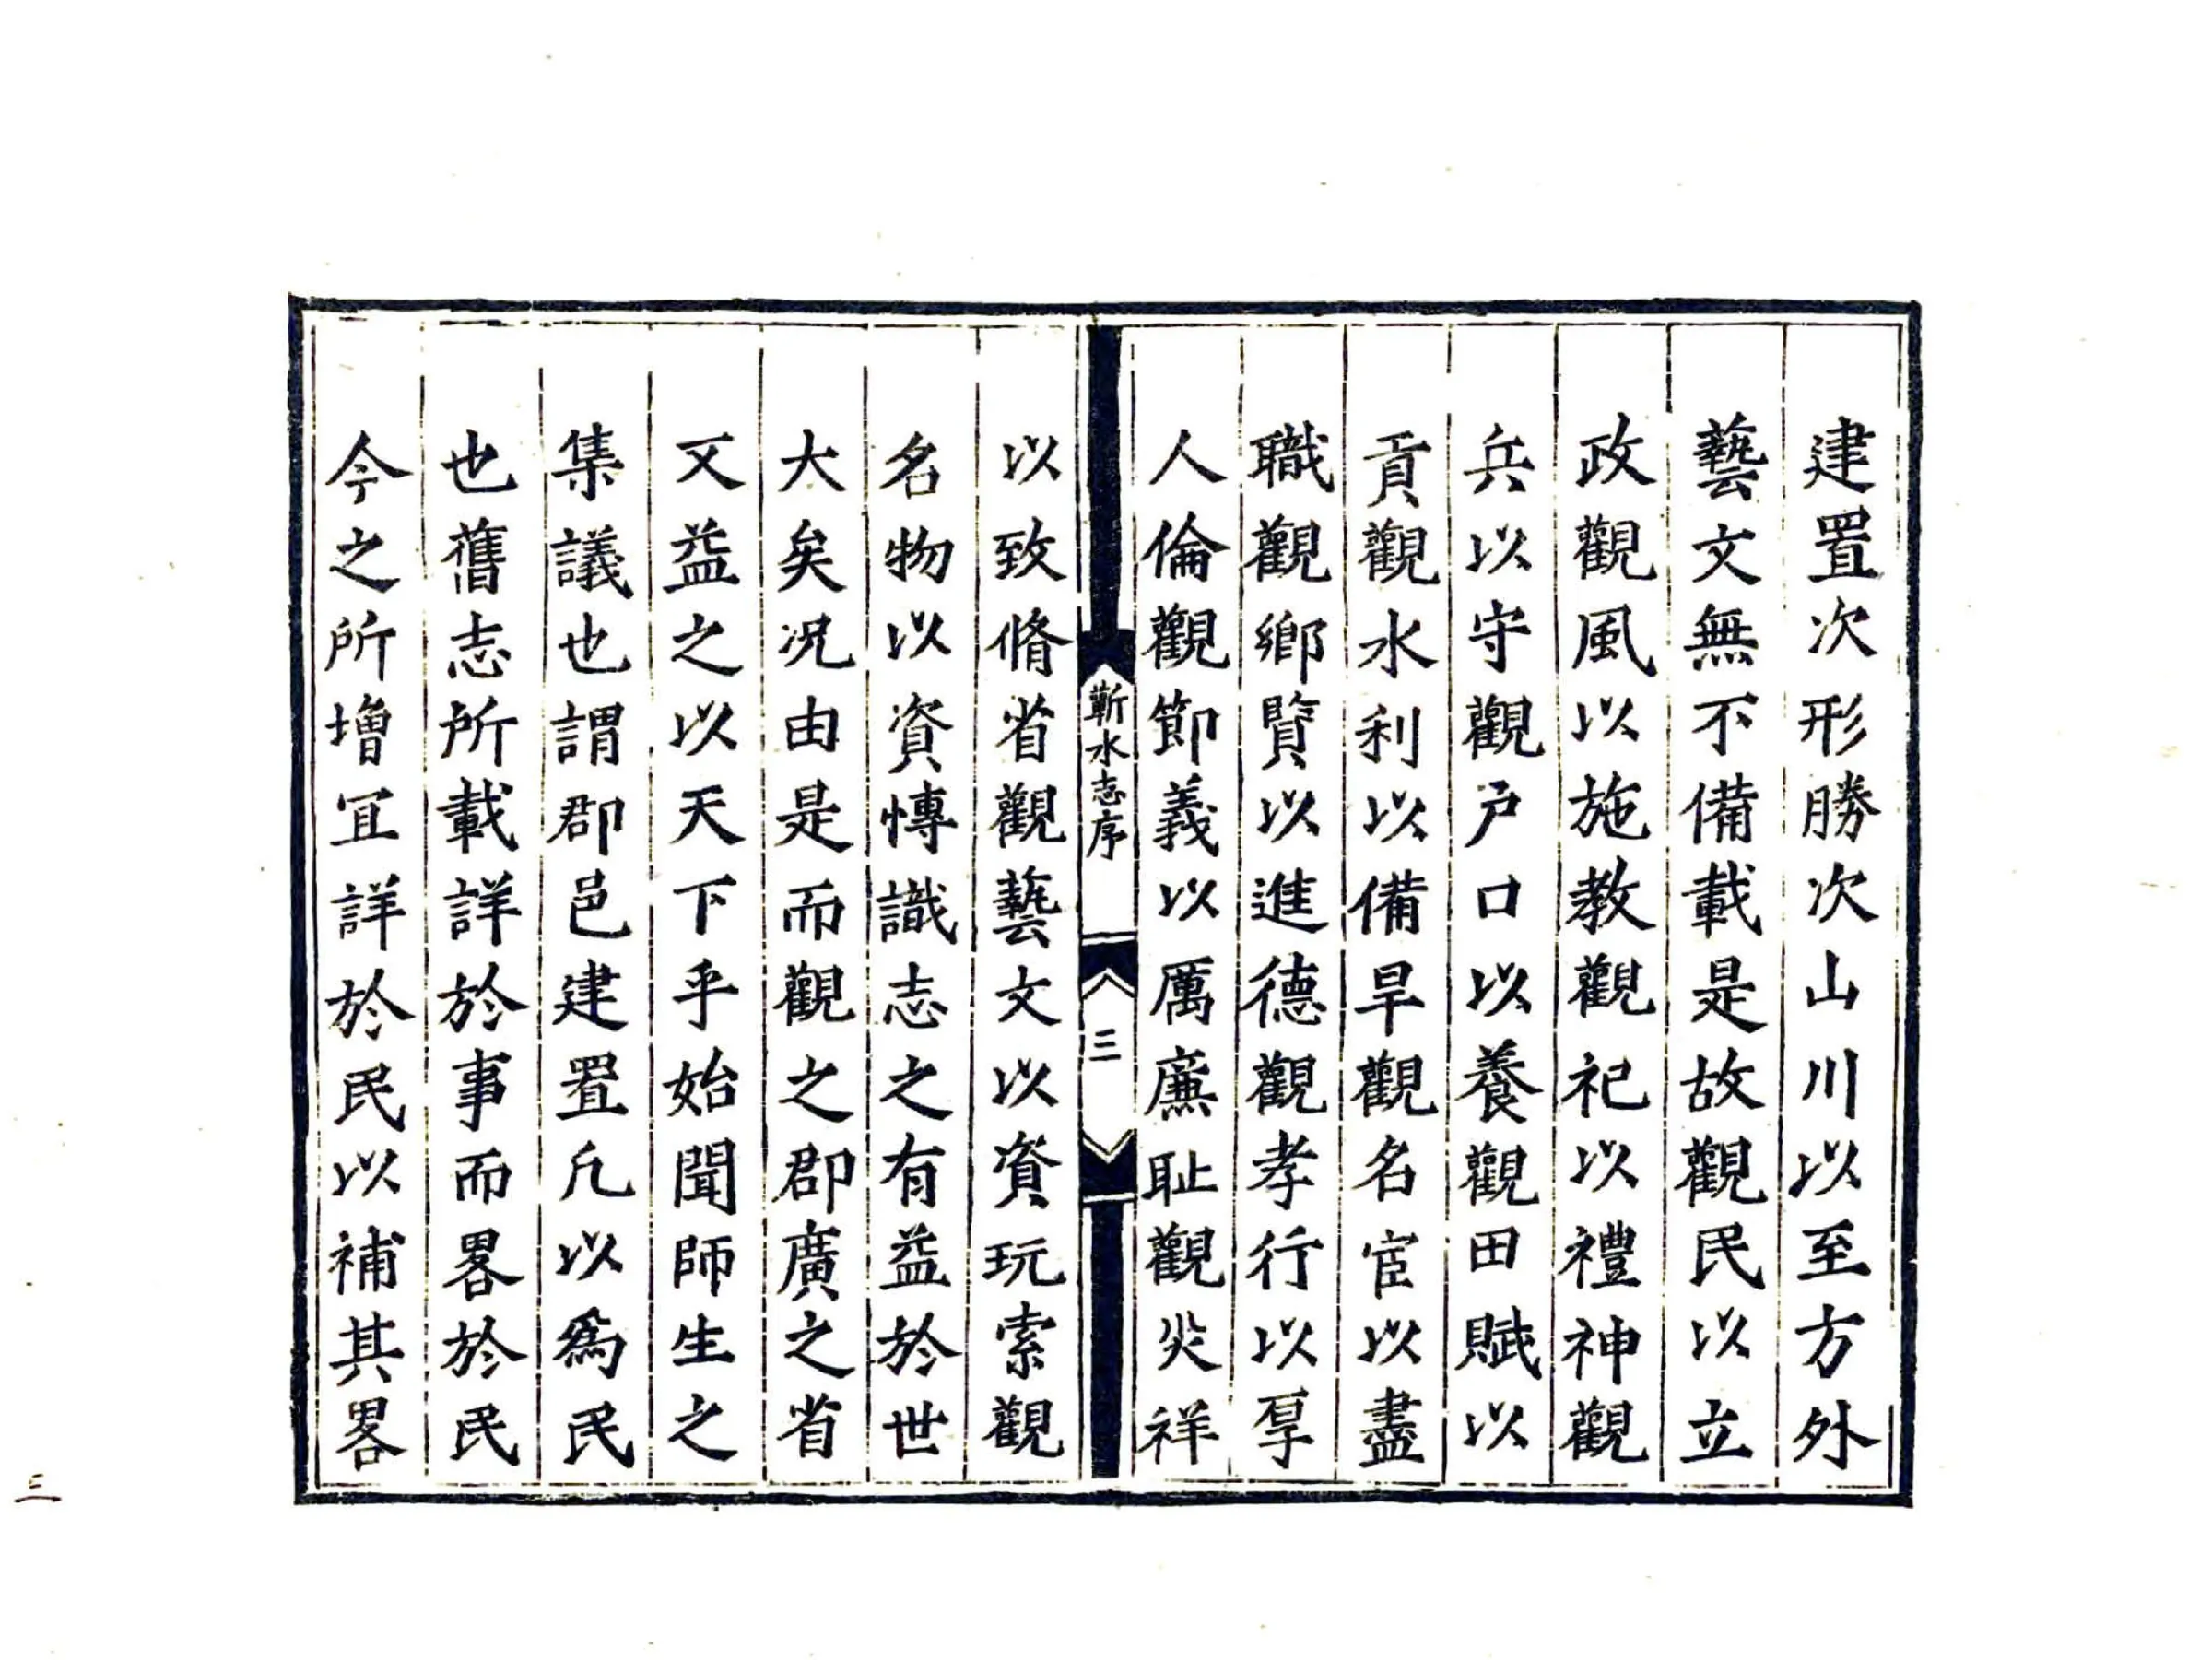 建置次形勝次山川以至方外
藝文無不備載是故觀民以立
政觀風以施教觀祀以禮神觀
兵以守觀戸口以養觀田賦以
貢觀水利以備旱觀名宦以盡
職觀鄉賢以進德觀孝行以厚
人倫觀節義以厲廉耻觀灾祥
蘄水志序
三
以致脩省觀藝文以資玩索觀
名物以資愽識志之有益於世
大矣况由是而觀之郡廣之省
又益之以天下乎始聞師生之
集議也謂郡邑建置凡以爲民
也舊志所載詳於事而畧於民
今之所增冝詳於民以補其畧
三